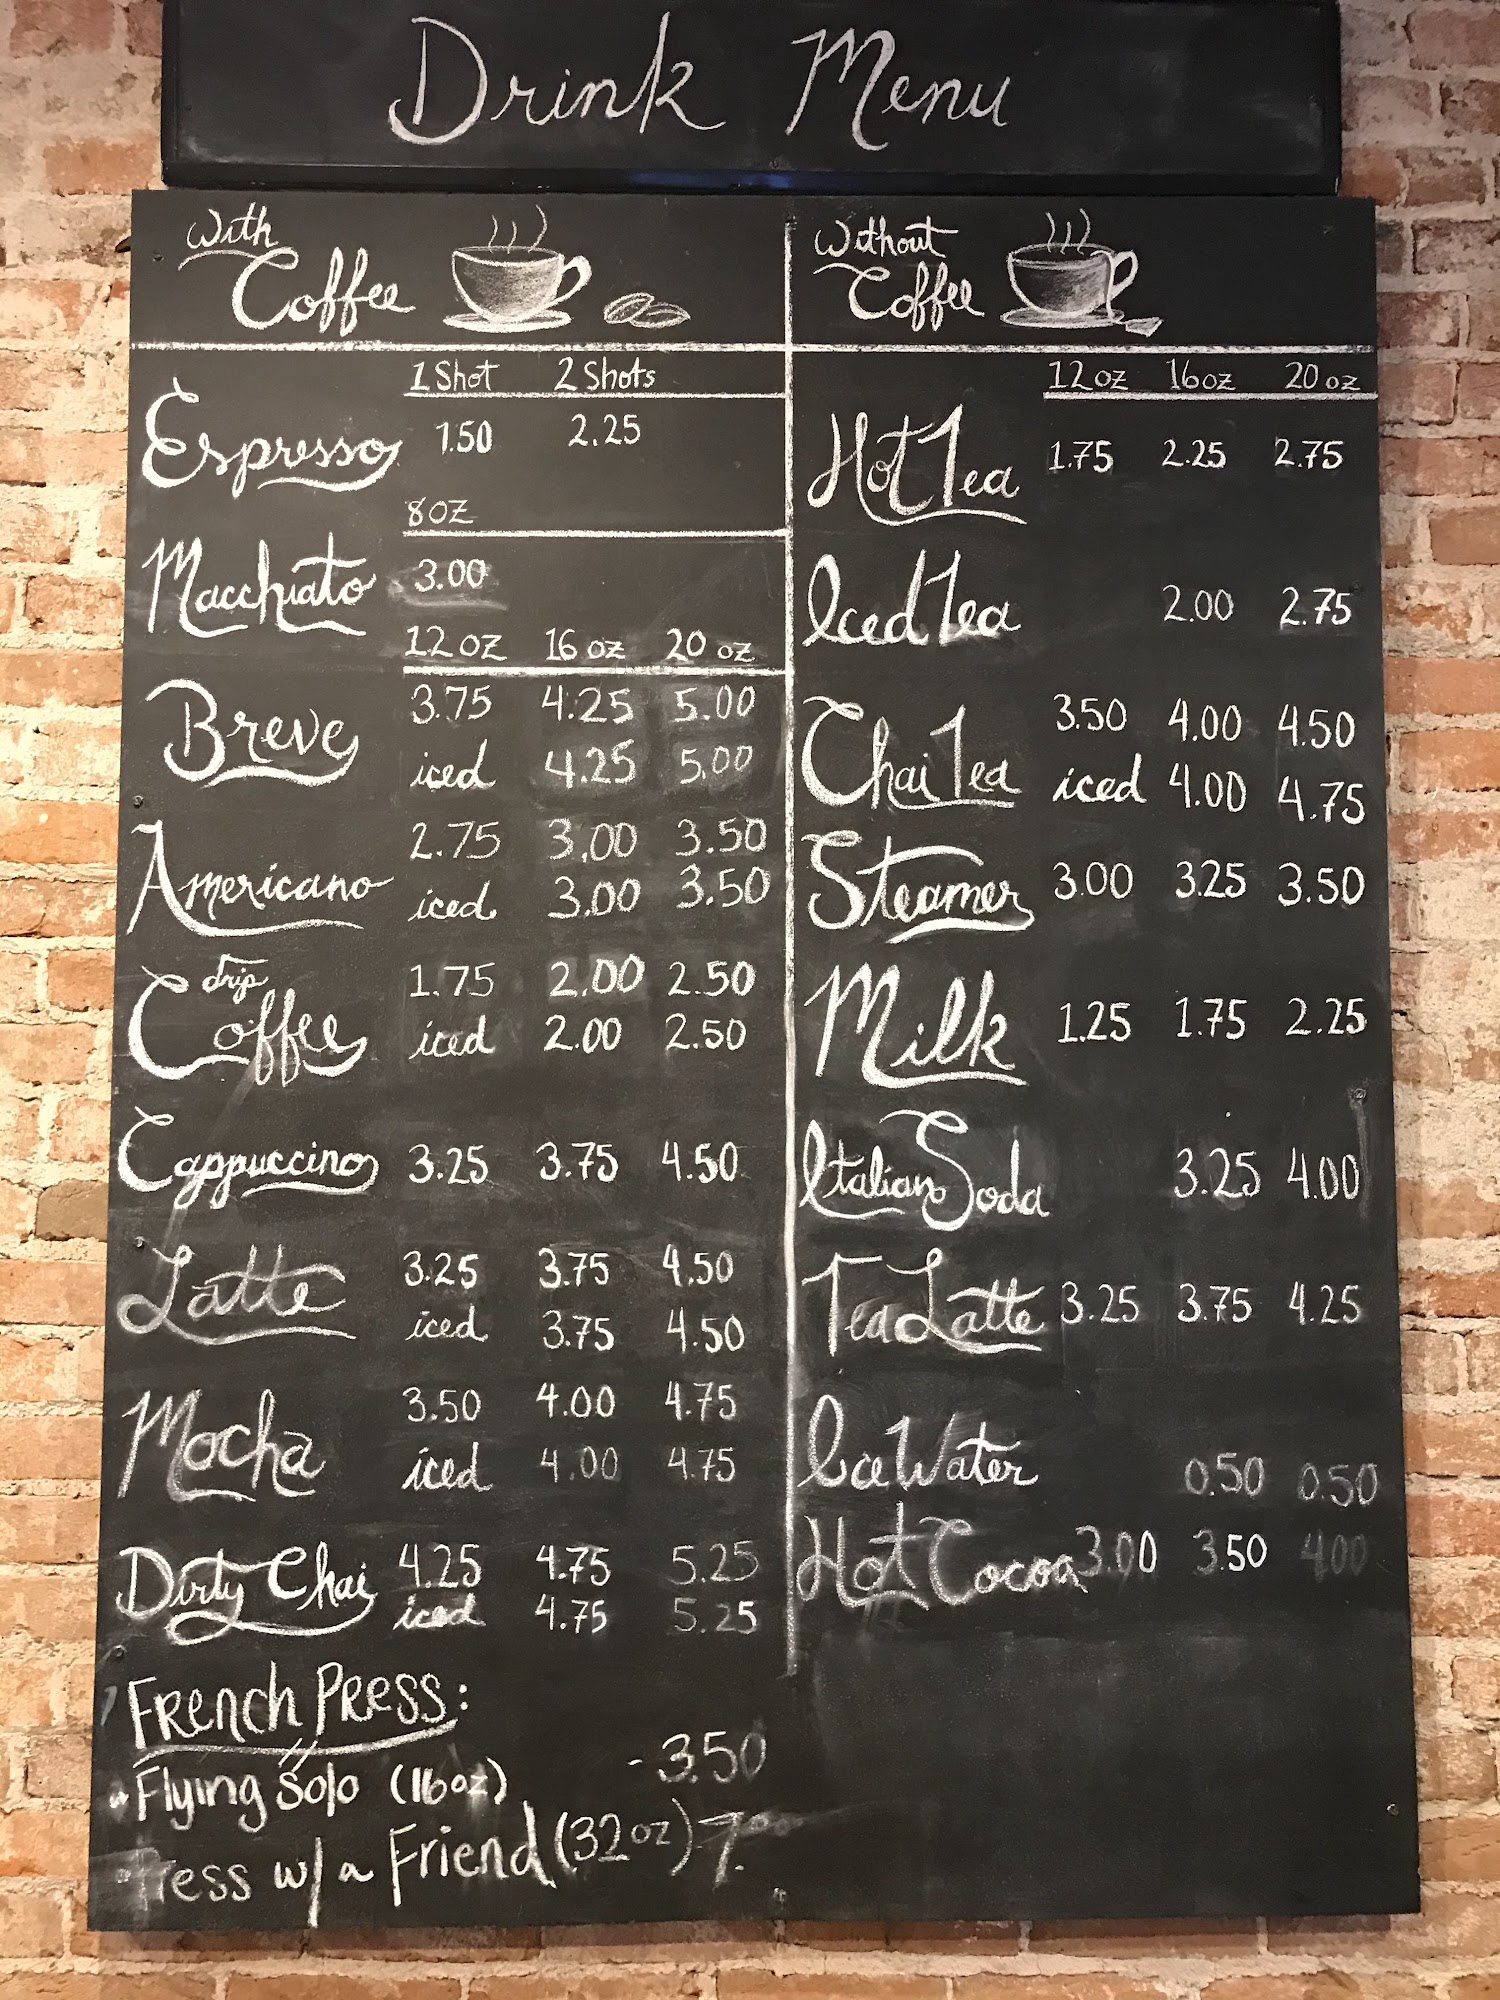 Drink Menu
With
Coffee
1 Shot 2 Shots
Espresso 1.50 2.25
8oz
Macchiato 3.00
12 oz 16 oz 20 oz
Breve 3.75 4.25 5.00
iced 4.25 5.00
Americano 2.75 3.00 3.50
iced 3.00 3.50
drip
Coffee 1.75 2.00 2.50
iced 2.00 2.50
Cappuccino 3.25 3.75 4.50
Latte 3.25 3.75 4.50
iced 3.75 4.50
Mocha 3.50 4.00 4.75
iced 4.00 4.75
Dirty Chai 4.25 4.75 5.25
iced 4.75 5.25
French Press:
Flying Solo (16oz) - 3.50
Press w/ a Friend (32oz) 7.00
Without
Coffee
12 oz 16 oz 20 oz
Hot Tea 1.75 2.25 2.75
Iced Tea 2.00 2.75
Chai Tea 3.50 4.00 4.50
iced 4.00 4.75
Steamer 3.00 3.25 3.50
Milk 1.25 1.75 2.25
Italian Soda 3.25 4.00
Tea Latte 3.25 3.75 4.25
Ice Water 0.50 0.50
Hot Cocoa 3.00 3.50 4.00